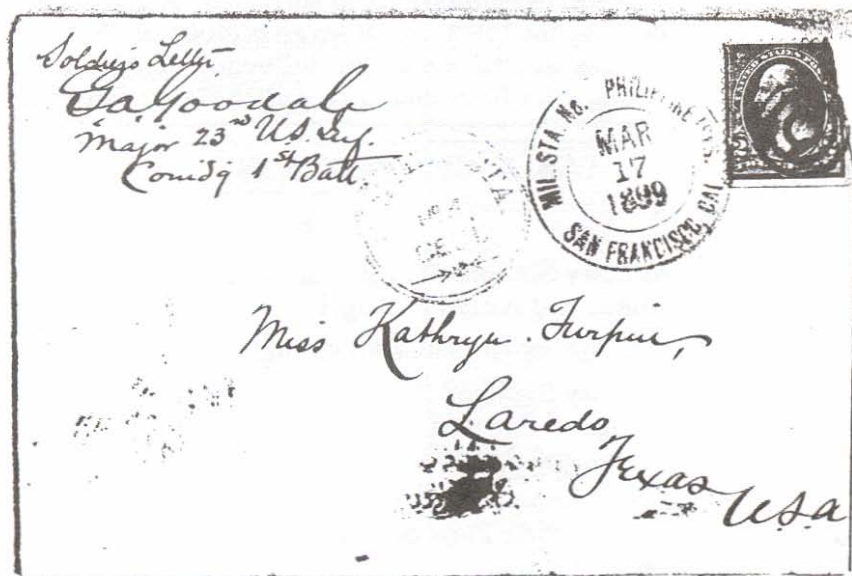 Soldier's Letter
GaGoodale
Major 23rd U.S. Inf.
Comdg 1st Batt.
MIL. STA. NO. PHILIPPINE ISDS.
MAR
17
1899
SAN FRANCISCO, CAL.
STA.
UNITED STATES POS
Miss Kathryn Turpin,
Laredo,
Texas
USA